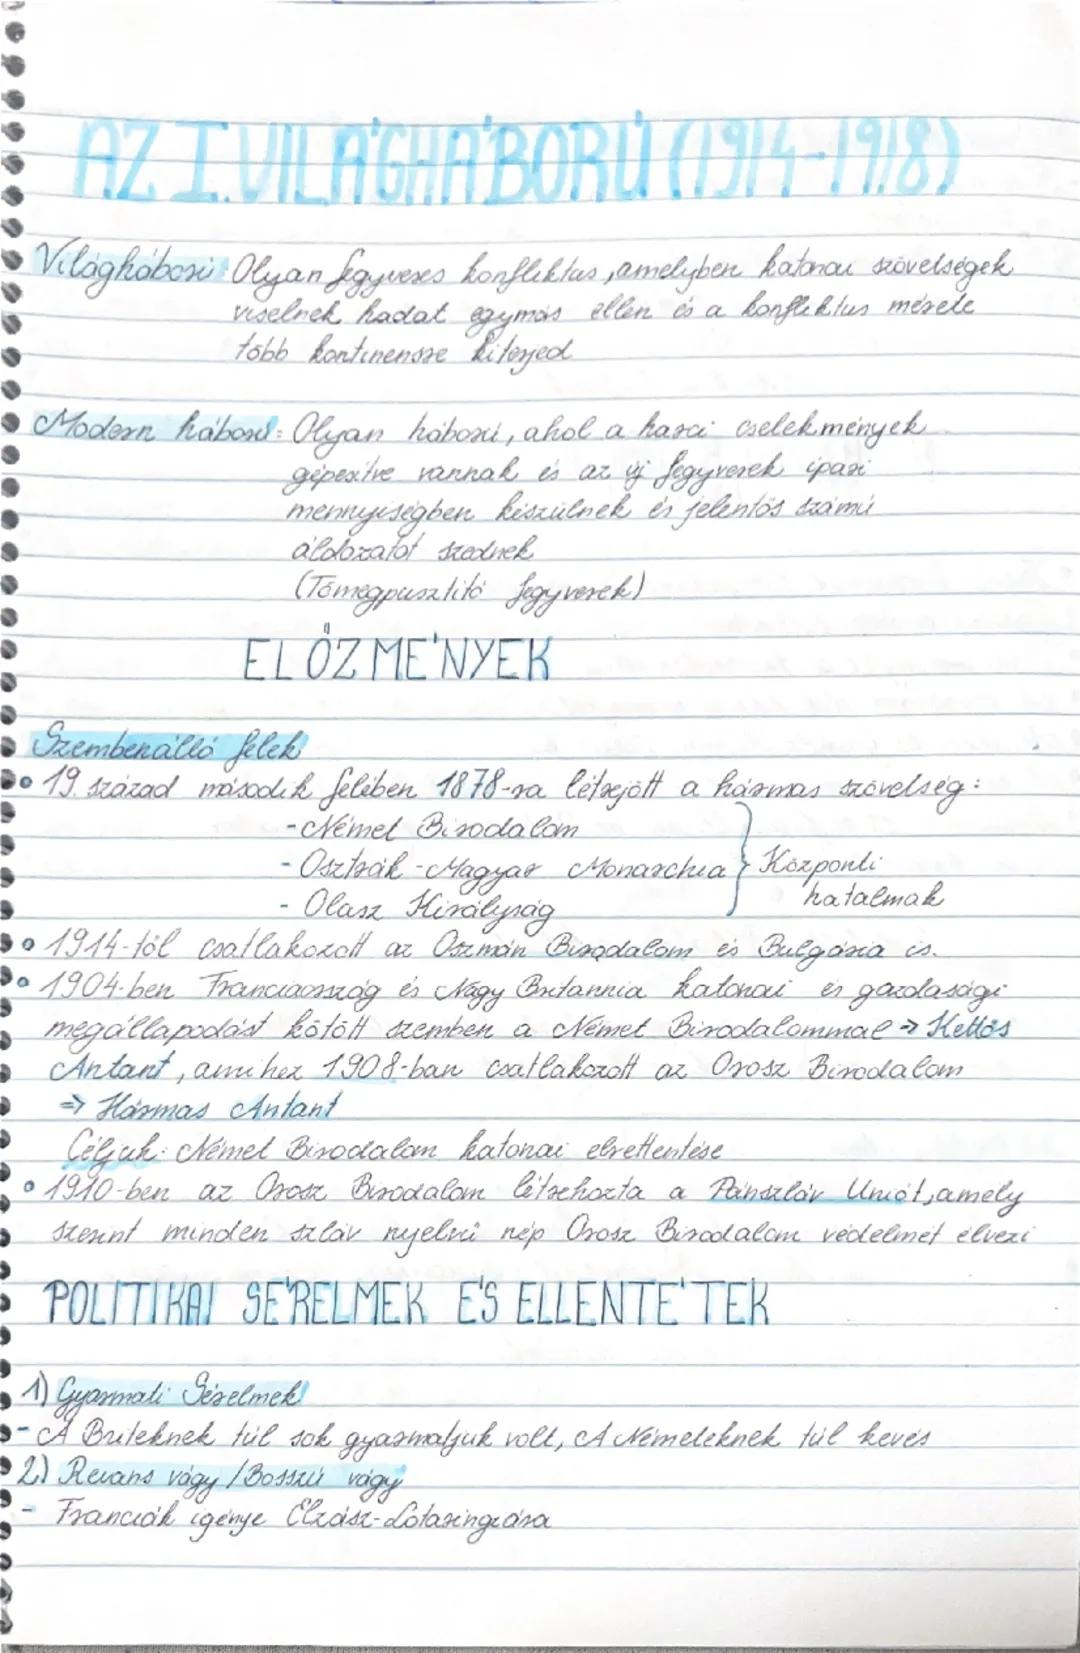 AZ I. VILÁGHÁBORÚ (1914-1918)
Világháború: Olyan fegyveres konfliktus, amelyben katonai szövetségek
viselnek hadat egymás ellen és a konfliktus mérete
több kontinensre kiterjed
Modern háború: Olyan háború, ahol a harci cselekmények
gépesítve vannak és az új fegyverek ipari
mennyiségben készülnek és jelentős számú
áldozatot szednek
(Tömegpusztító fegyverek)
ELŐZMÉNYEK
Szembenálló felek
• 19. század második felében 1878-ra létrejött a hármas szövetség:
- Német Birodalom
- Osztrák-Magyar Monarchia } Központi
hatalmak
- Olasz Királyság
• 1914-től csatlakozott az Oszmán Birodalom és Bulgária is.
• 1904-ben Franciaország és Nagy Britannia katonai és gazdasági
megállapodást kötött szemben a Német Birodalommal => Kettős
Antant, amihez 1908-ban csatlakozott az Orosz Birodalom
=> Hármas Antant
Céljuk: Német Birodalom katonai elrettentése
• 1910-ben az Orosz Birodalom létrehozta a Pánszláv Uniót, amely
szerint minden szláv nyelvű nép Orosz Birodalom védelmét élvezi
POLITIKAI SÉRELMEK ÉS ELLENTÉTEK
1) Gyarmati Sérelmek
- A Briteknek túl sok gyarmatjuk volt, A Németeknek túl kevés
2) Revans vágy / Bosszú vágy
- Franciák igénye Elzász-Lotaringiára